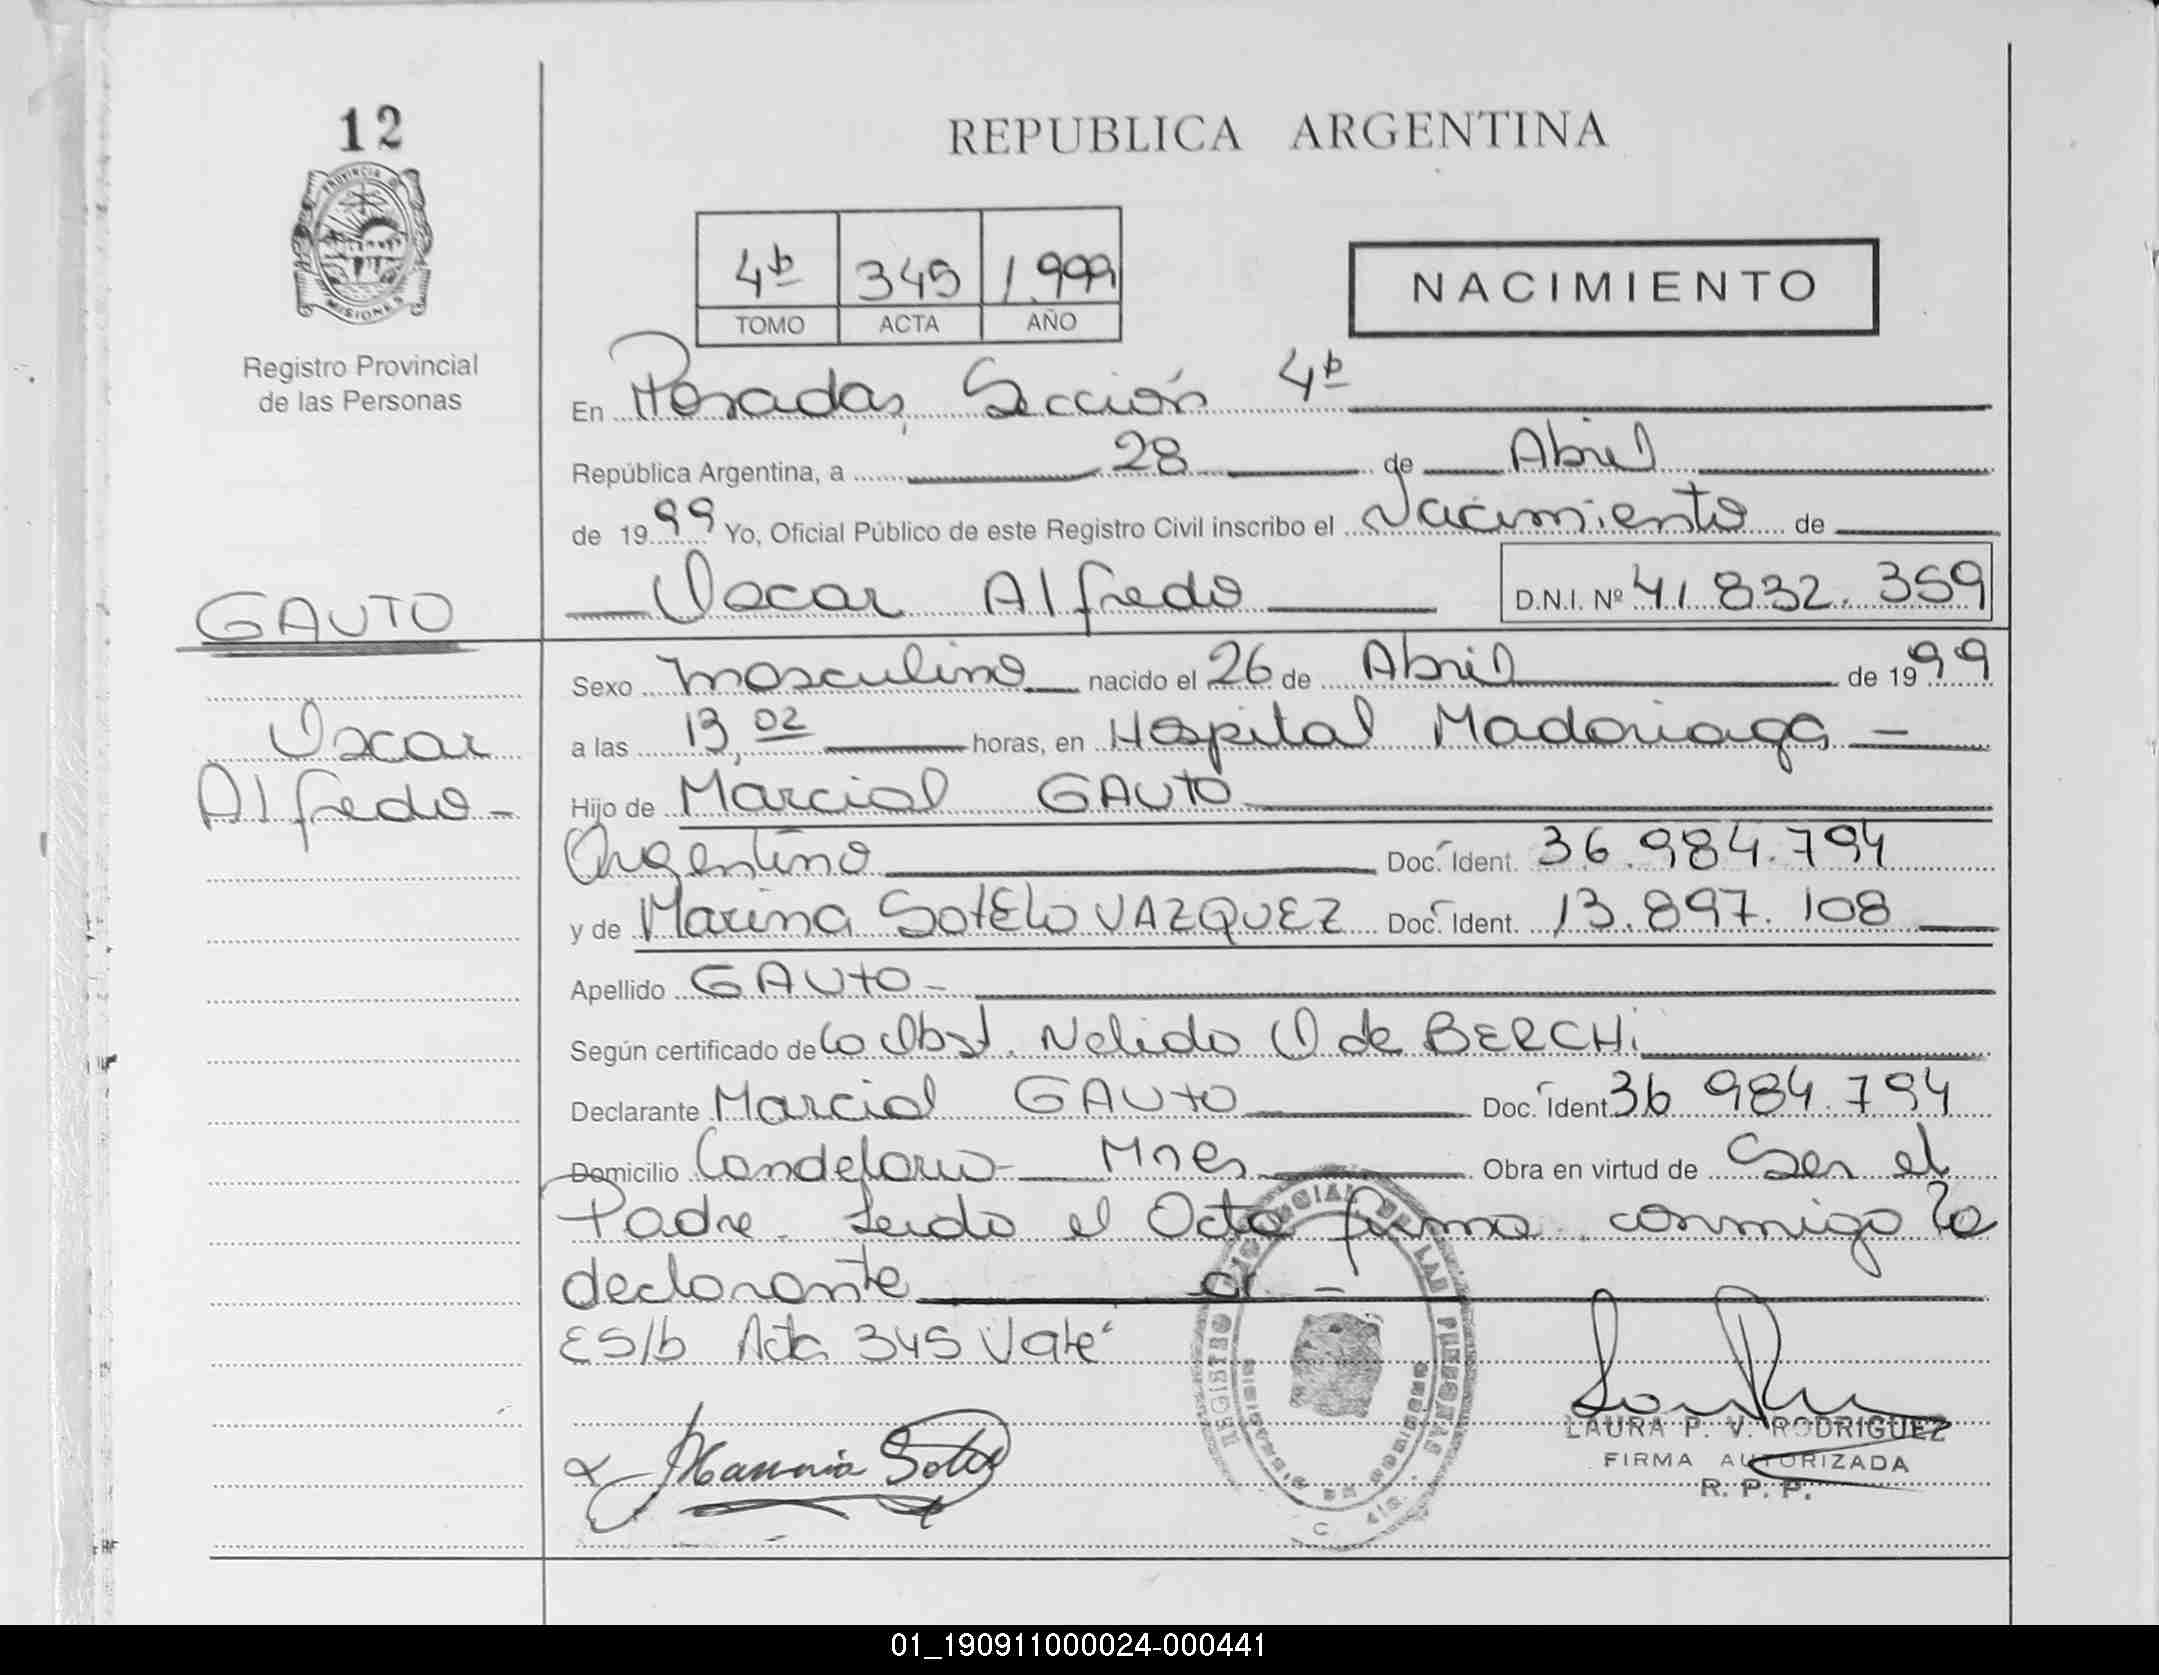 12
PROVINCIA DE
MISIONES
Registro Provincial
de las Personas
GAUTO
Oscar
Alfredo-
REPUBLICA ARGENTINA
4ª 345 1.999
TOMO ACTA AÑO
NACIMIENTO
En Posadas, Sección 4ª
República Argentina, a 28 de Abril
de 1999 Yo, Oficial Público de este Registro Civil inscribo el Nacimiento de
Oscar Alfredo D.N.I. Nº 41.832.359
Sexo masculino nacido el 26 de Abril de 1999
a las 13,02 horas, en Hospital Madariaga -
Hijo de Marcial GAUTO
Argentino Doc. Ident. 36.984.794
y de Marina SOTELO VAZQUEZ Doc. Ident. 13.897.108
Apellido GAUTO -
Según certificado de la Obst. Nelida O de BERCHi
Declarante Marcial GAUTO Doc. Ident 36 984.794
Domicilio Candelaria - Mnes Obra en virtud de Ser el
Padre. Leida el Acta firma conmigo la
declarante
ES/b Acta 345 Vale
REGISTRO PROVINCIAL DE LAS PERSONAS
LAURA P. V. RODRIGUEZ
FIRMA AUTORIZADA
R. P. P.
01_190911000024-000441